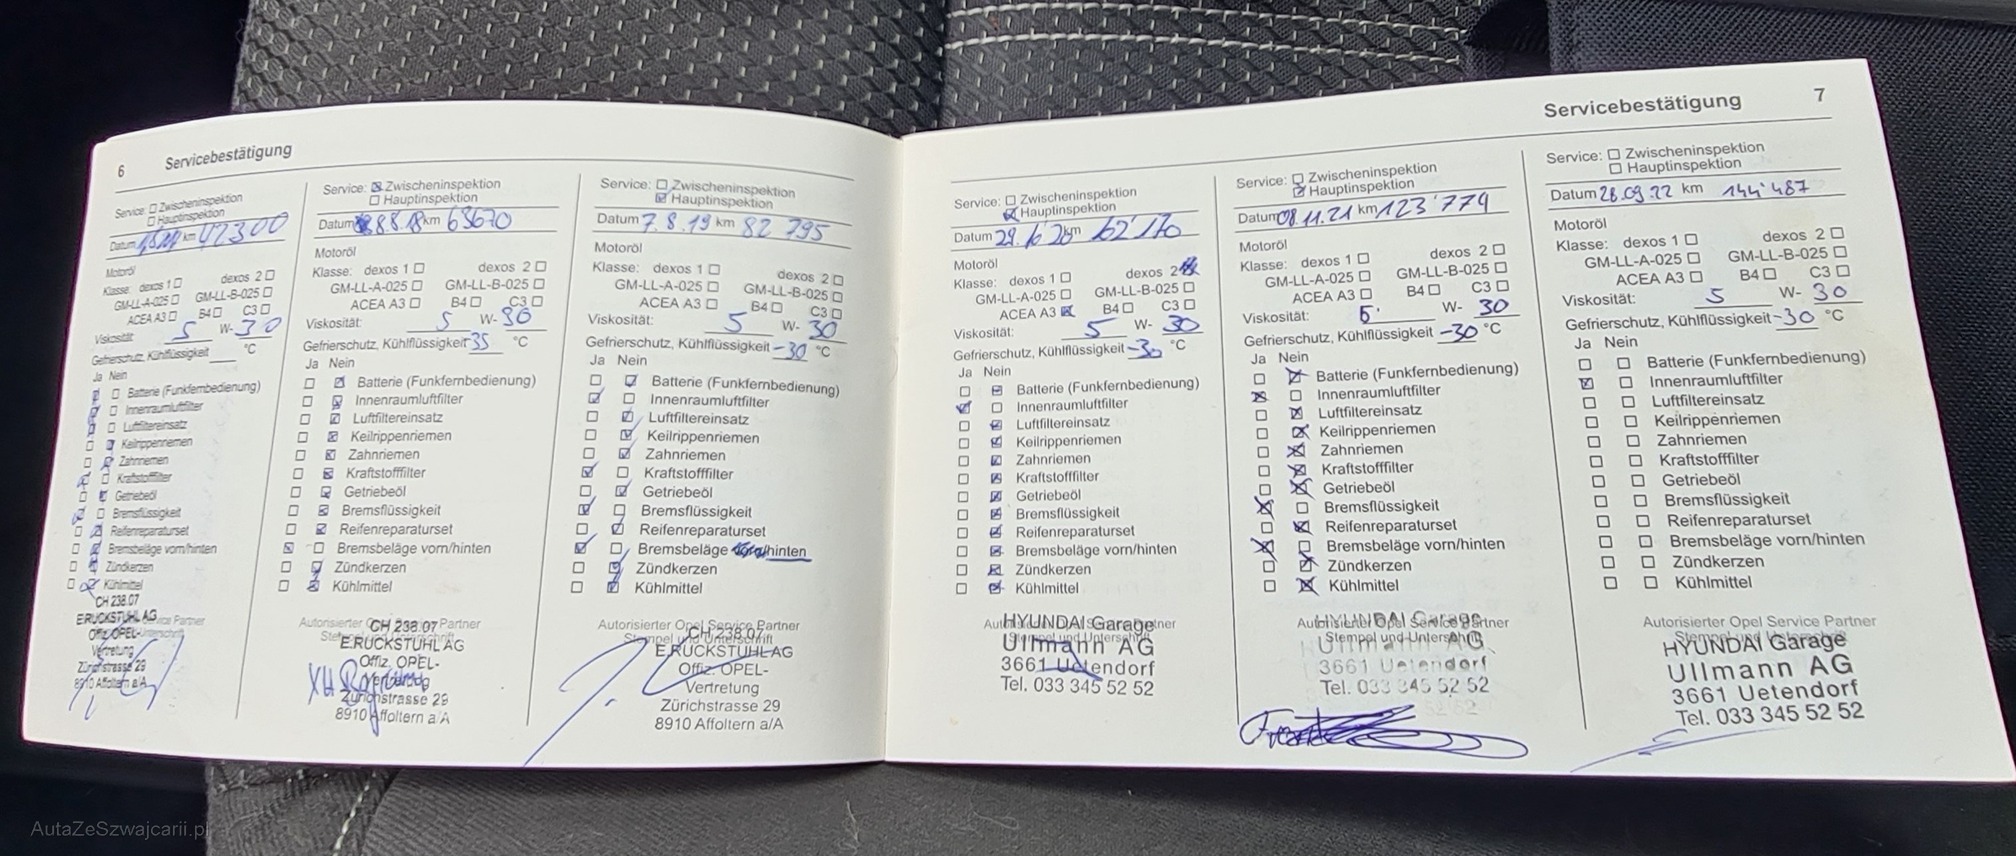 6 Servicebestätigung
Service: Zwischeninspektion
Hauptinspektion
Datum km 42300
Motoröl
Klasse: dexos 1 dexos 2
GM-LL-A-025 GM-LL-B-025
ACEA A3 B4 C3
Viskosität 5 W- 30
Gefrierschutz, Kühlflüssigkeit °C
Ja Nein
Batterie (Funkfernbedienung)
Innenraumluftfilter
Luftfiltereinsatz
Keilrippenriemen
Zahnriemen
Kraftstofffilter
Getriebeöl
Bremsflüssigkeit
Reifenreparaturset
Bremsbeläge vorn/hinten
Zündkerzen
Kühlmittel
CH 238.07
E.RUCKSTUHL AG
Offiz. OPEL-
Vertretung
Zürichstrasse 29
8910 Affoltern a/A
Service: Zwischeninspektion
Hauptinspektion
Datum 8.8.18 km 63670
Motoröl
Klasse: dexos 1 dexos 2
GM-LL-A-025 GM-LL-B-025
ACEA A3 B4 C3
Viskosität: 5 W- 30
Gefrierschutz, Kühlflüssigkeit -35 °C
Ja Nein
Batterie (Funkfernbedienung)
Innenraumluftfilter
Luftfiltereinsatz
Keilrippenriemen
Zahnriemen
Kraftstofffilter
Getriebeöl
Bremsflüssigkeit
Reifenreparaturset
Bremsbeläge vorn/hinten
Zündkerzen
Kühlmittel
Autorisierter Opel Service Partner
CH 238.07
E.RUCKSTUHL AG
Offiz. OPEL-
Vertretung
Zürichstrasse 29
8910 Affoltern a/A
Service: Zwischeninspektion
Hauptinspektion
Datum 7.8.19 km 82 795
Motoröl
Klasse: dexos 1 dexos 2
GM-LL-A-025 GM-LL-B-025
ACEA A3 B4 C3
Viskosität: 5 W- 30
Gefrierschutz, Kühlflüssigkeit -30 °C
Ja Nein
Batterie (Funkfernbedienung)
Innenraumluftfilter
Luftfiltereinsatz
Keilrippenriemen
Zahnriemen
Kraftstofffilter
Getriebeöl
Bremsflüssigkeit
Reifenreparaturset
Bremsbeläge vorn/hinten
Zündkerzen
Kühlmittel
Autorisierter Opel Service Partner
Stempel und Unterschrift
CH 238.07
E.RUCKSTUHL AG
Offiz. OPEL-
Vertretung
Zürichstrasse 29
8910 Affoltern a/A
Servicebestätigung 7
Service: Zwischeninspektion
Hauptinspektion
Datum km
Motoröl
Klasse: dexos 1 dexos 2
GM-LL-A-025 GM-LL-B-025
ACEA A3 B4 C3
Viskosität: 5 W- 30
Gefrierschutz, Kühlflüssigkeit -30 °C
Ja Nein
Batterie (Funkfernbedienung)
Innenraumluftfilter
Luftfiltereinsatz
Keilrippenriemen
Zahnriemen
Kraftstofffilter
Getriebeöl
Bremsflüssigkeit
Reifenreparaturset
Bremsbeläge vorn/hinten
Zündkerzen
Kühlmittel
HYUNDAI Garage
Stempel und Unterschrift
Ullmann AG
3661 Uetendorf
Tel. 033 345 52 52
Service: Zwischeninspektion
Hauptinspektion
Datum 08.11.21 km 123'779
Motoröl
Klasse: dexos 1 dexos 2
GM-LL-A-025 GM-LL-B-025
ACEA A3 B4 C3
Viskosität: 5 W- 30
Gefrierschutz, Kühlflüssigkeit -30 °C
Ja Nein
Batterie (Funkfernbedienung)
Innenraumluftfilter
Luftfiltereinsatz
Keilrippenriemen
Zahnriemen
Kraftstofffilter
Getriebeöl
Bremsflüssigkeit
Reifenreparaturset
Bremsbeläge vorn/hinten
Zündkerzen
Kühlmittel
Autorisierter Opel Service Partner
HYUNDAI Garage
Stempel und Unterschrift
Ullmann AG
3661 Uetendorf
Tel. 033 345 52 52
Service: Zwischeninspektion
Hauptinspektion
Datum 28.09.22 km 144'487
Motoröl
Klasse: dexos 1 dexos 2
GM-LL-A-025 GM-LL-B-025
ACEA A3 B4 C3
Viskosität: 5 W- 30
Gefrierschutz, Kühlflüssigkeit -30 °C
Ja Nein
Batterie (Funkfernbedienung)
Innenraumluftfilter
Luftfiltereinsatz
Keilrippenriemen
Zahnriemen
Kraftstofffilter
Getriebeöl
Bremsflüssigkeit
Reifenreparaturset
Bremsbeläge vorn/hinten
Zündkerzen
Kühlmittel
Autorisierter Opel Service Partner
Stempel und Unterschrift
HYUNDAI Garage
Ullmann AG
3661 Uetendorf
Tel. 033 345 52 52
AutaZeSzwajcarii.pl